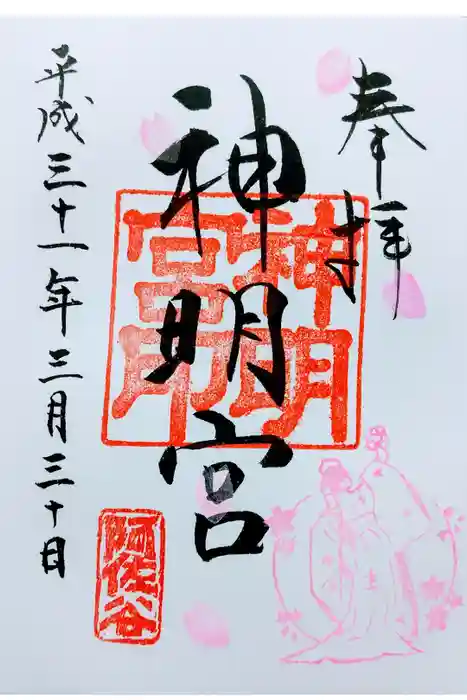 奉拝
神明宮
神明宮印
阿佐谷
平成三十一年三月三十日